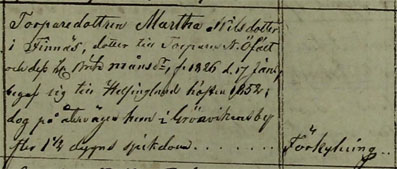 Torparedottren Martha Nilsdotter
i Finnäs, dotter till Torparn N. Öfået
och dess h. månsdr, f. 1826 d. 17 Janr,
begaf sig till Helsingland hösten 1852,
dog på återvägen hem i by
efter 1½ dygns sjukdom
Förkylning